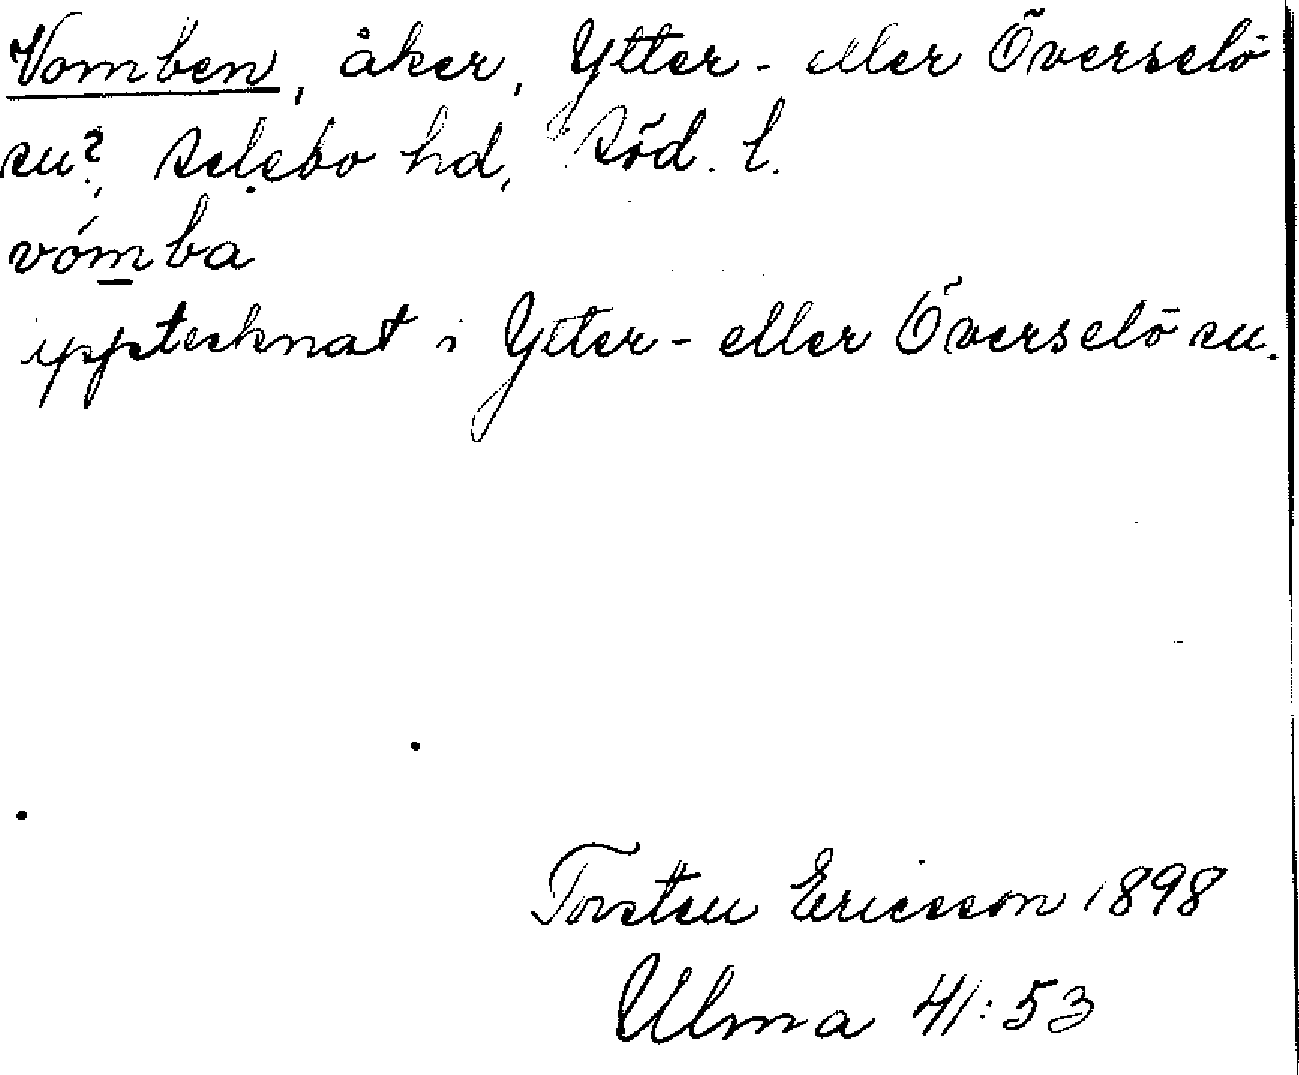 Vomben, åker, Ytter- eller Överselö
sn?, Selebo hd, Söd. l.
vómba
upptecknat i Ytter- eller Överselö sn.
Torsten Ericsson 1898
Ulma 41:53